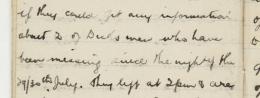 if they could get any information
about 2 of Dick's men who have
been missing since the night of the
29/30th July. They left at 2pm & are